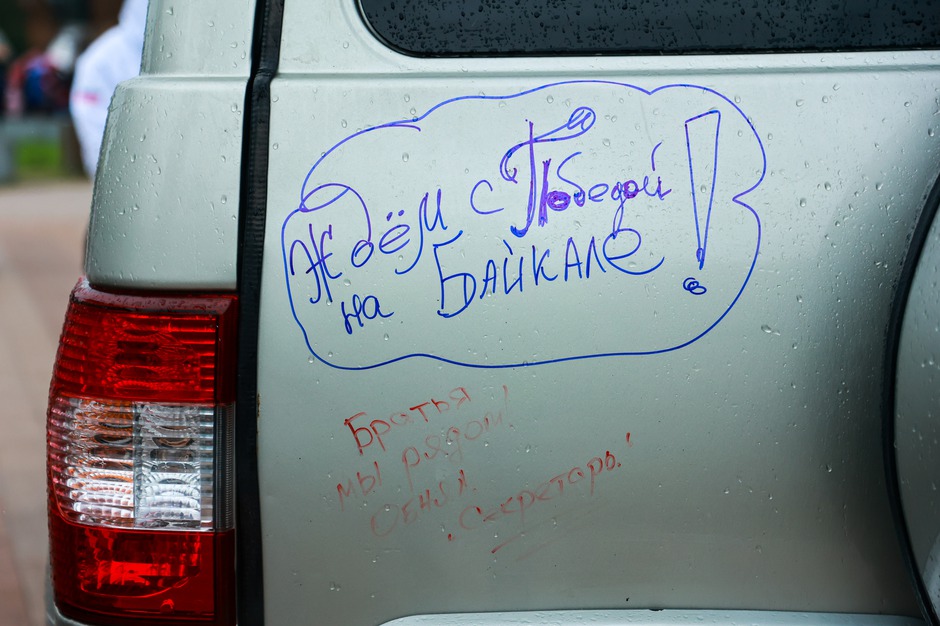 Ждём с Победой
на БАЙКАЛЕ!
Братья
мы рядом!
Обнял.
Секретарь!